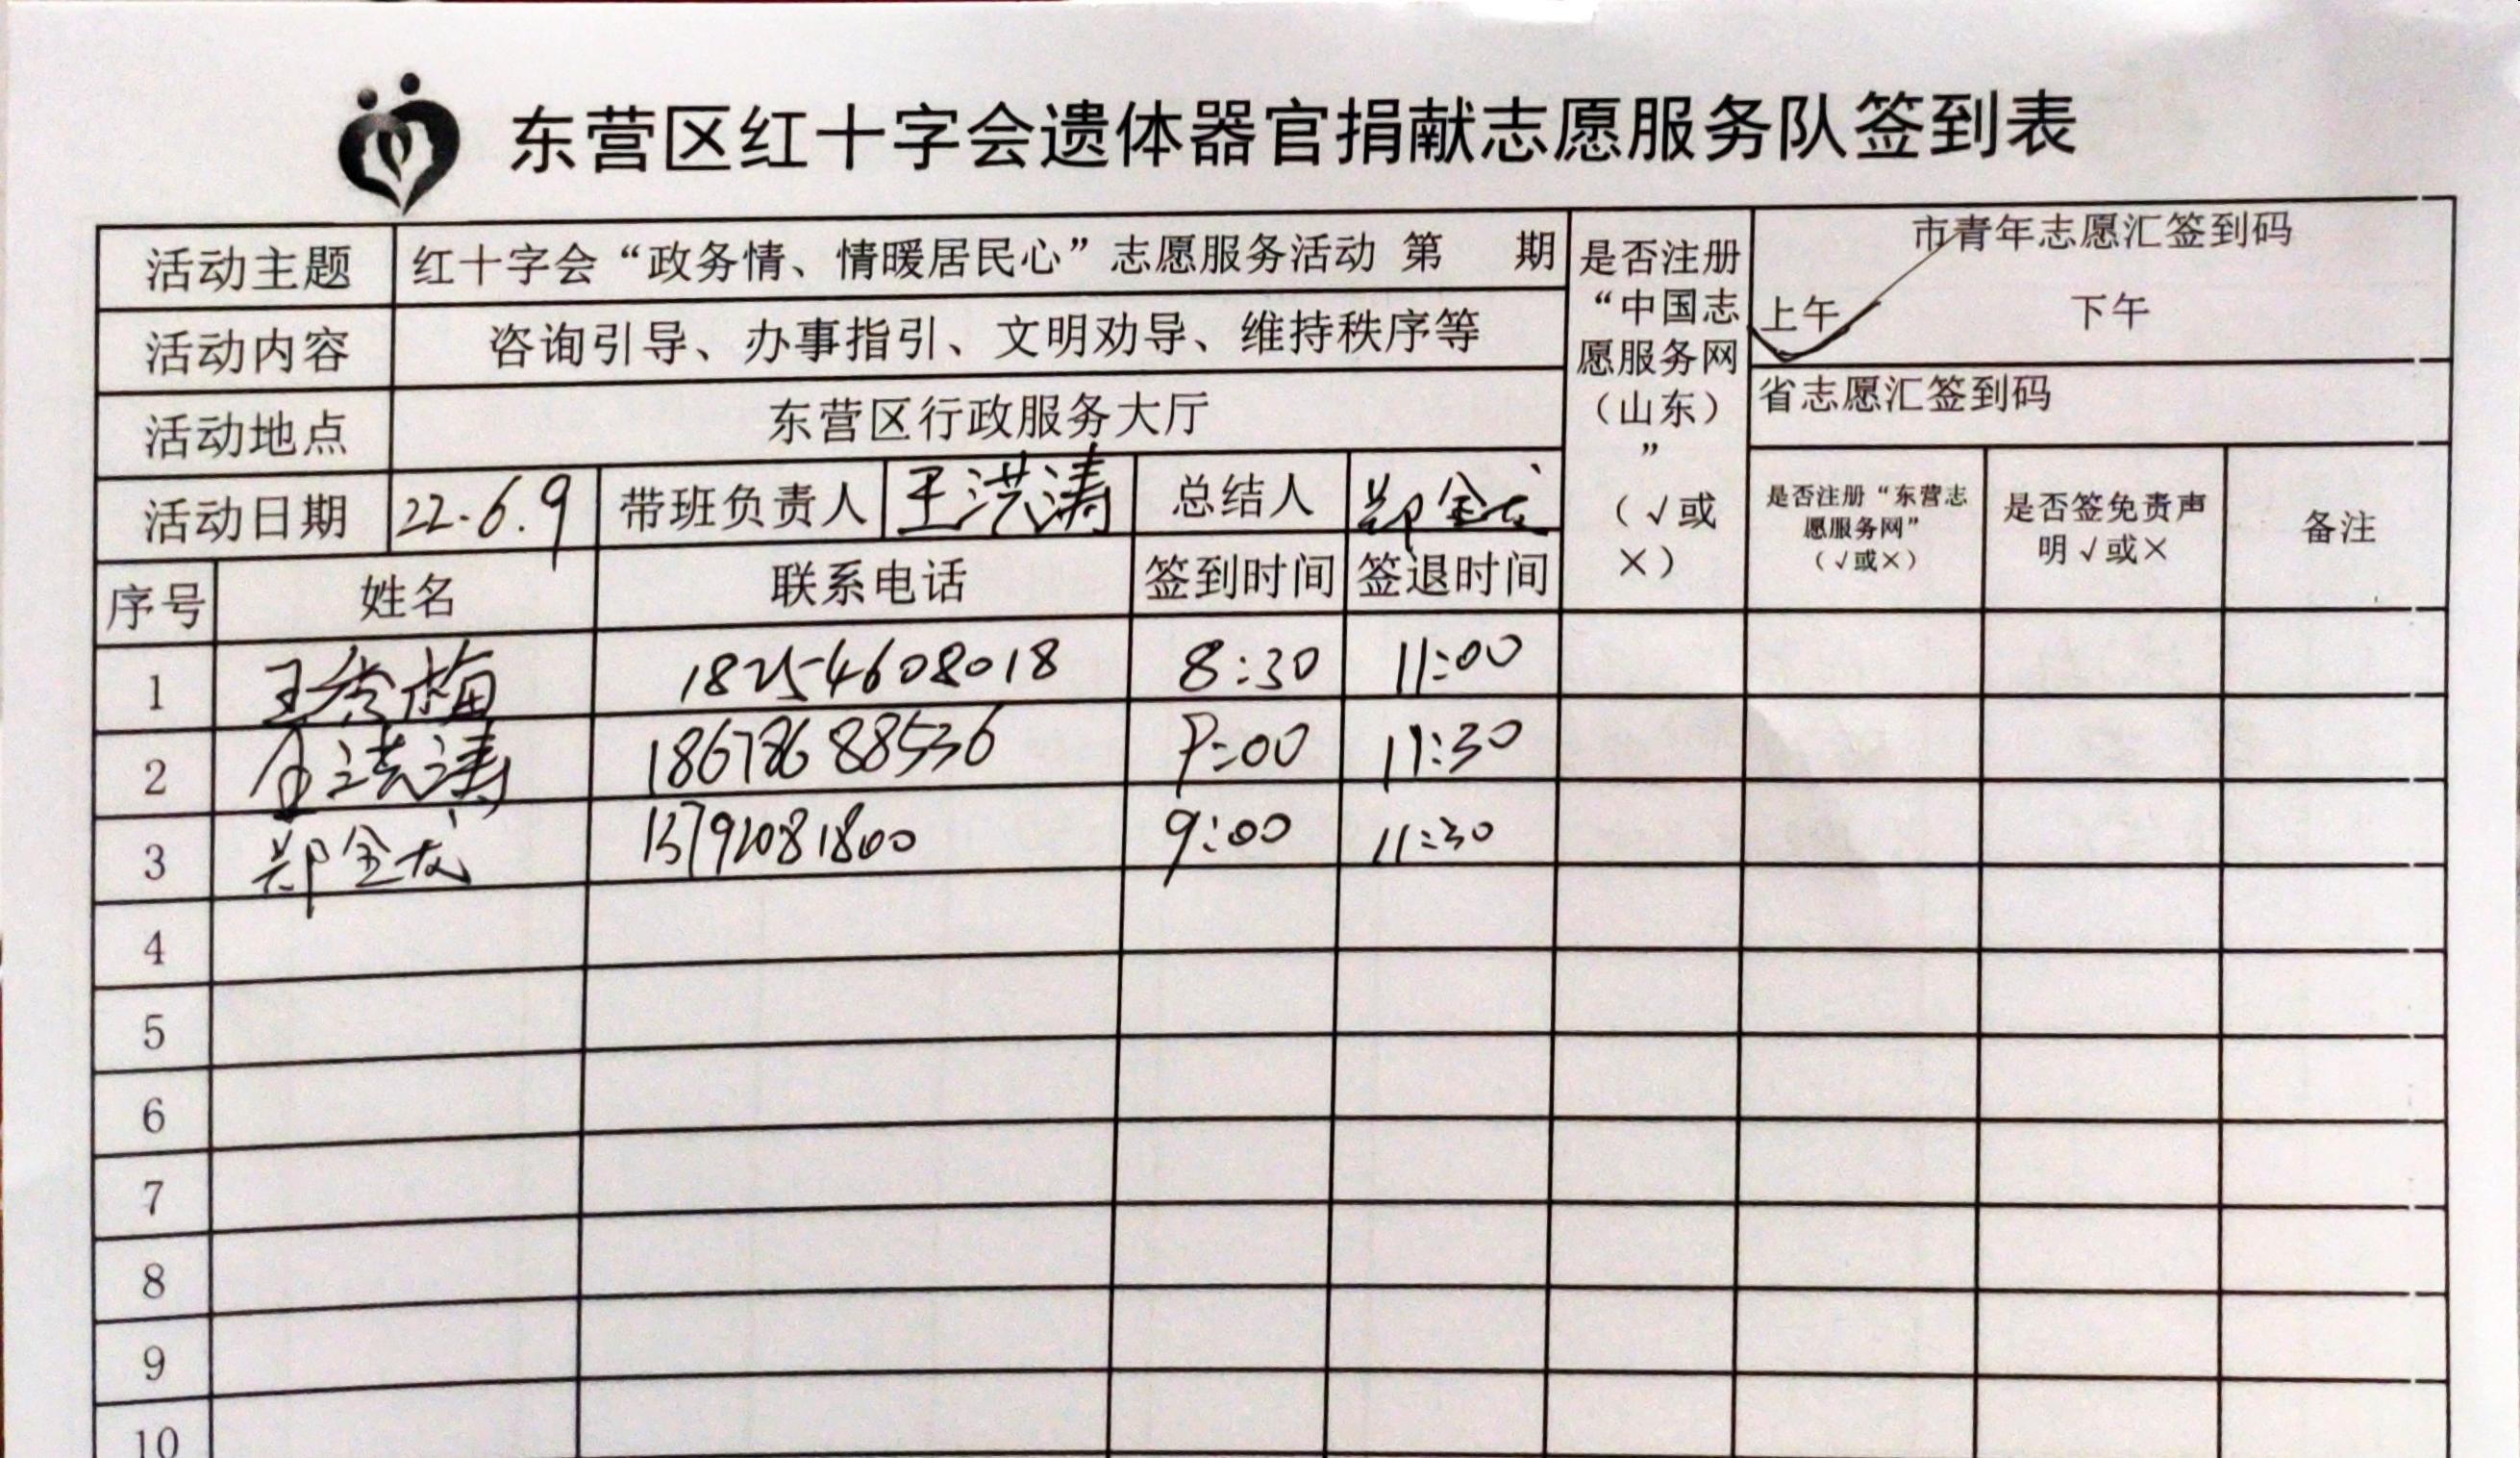 东营区红十字会遗体器官捐献志愿服务队签到表
活动主题 红十字会“政务情、情暖居民心”志愿服务活动 第 期
活动内容 咨询引导、办事指引、文明劝导、维持秩序等
活动地点 东营区行政服务大厅
活动日期 22.6.9 带班负责人 王洪涛 总结人 郑金龙
是否注册
“中国志
愿服务网
（山东）
”
（√或
×）
市青年志愿汇签到码
上午 下午
省志愿汇签到码
是否注册“东营志
愿服务网”
（√或×）
是否签免责声
明√或×
备注
序号 姓名 联系电话 签到时间 签退时间
1 王秀梅 18254608018 8:30 11:00
2 王洪涛 18678688536 9:00 11:30
3 郑金龙 13792081800 9:00 11:30
4
5
6
7
8
9
10